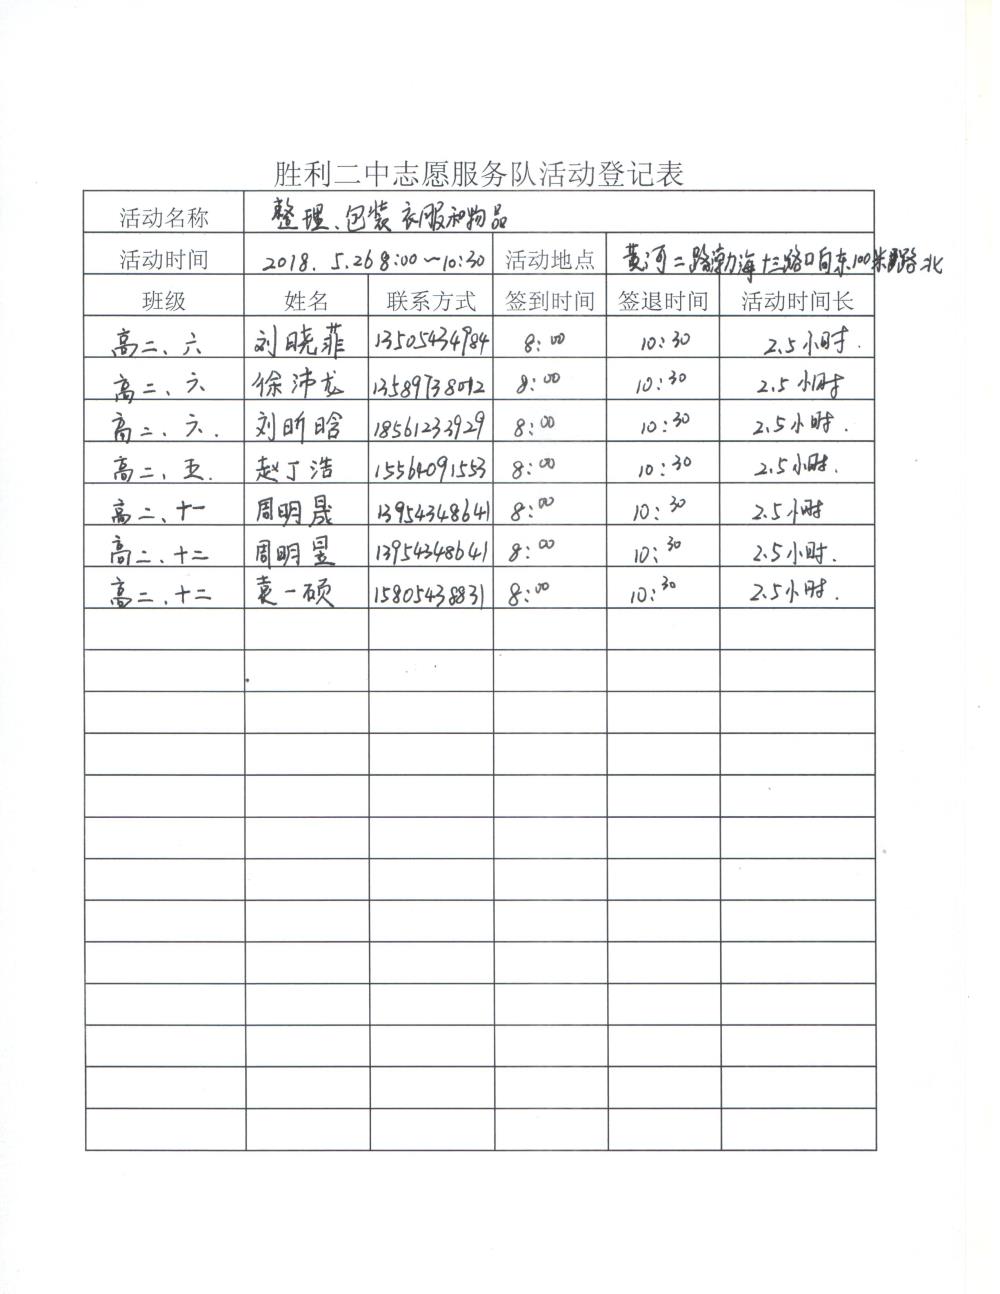 胜利二中志愿服务队活动登记表
活动名称 整理、包装衣服和物品
活动时间 2018.5.26 8:00～10:30 活动地点 黄河二路渤海十三路口向东100米路北
班级 姓名 联系方式 签到时间 签退时间 活动时间长
高二、六 刘晓菲 13505434984 8:00 10:30 2.5小时.
高二、六 徐沛龙 13589738012 8:00 10:30 2.5小时
高二、六. 刘昕晗 18561233929 8:00 10:30 2.5小时.
高二、五. 赵丁浩 15564091553 8:00 10:30 2.5小时.
高二、十一 周明晟 13954348641 8:00 10:30 2.5小时
高二、十二 周明昱 13954348641 8:00 10:30 2.5小时.
高二、十二 袁一硕 15805438831 8:00 10:30 2.5小时.